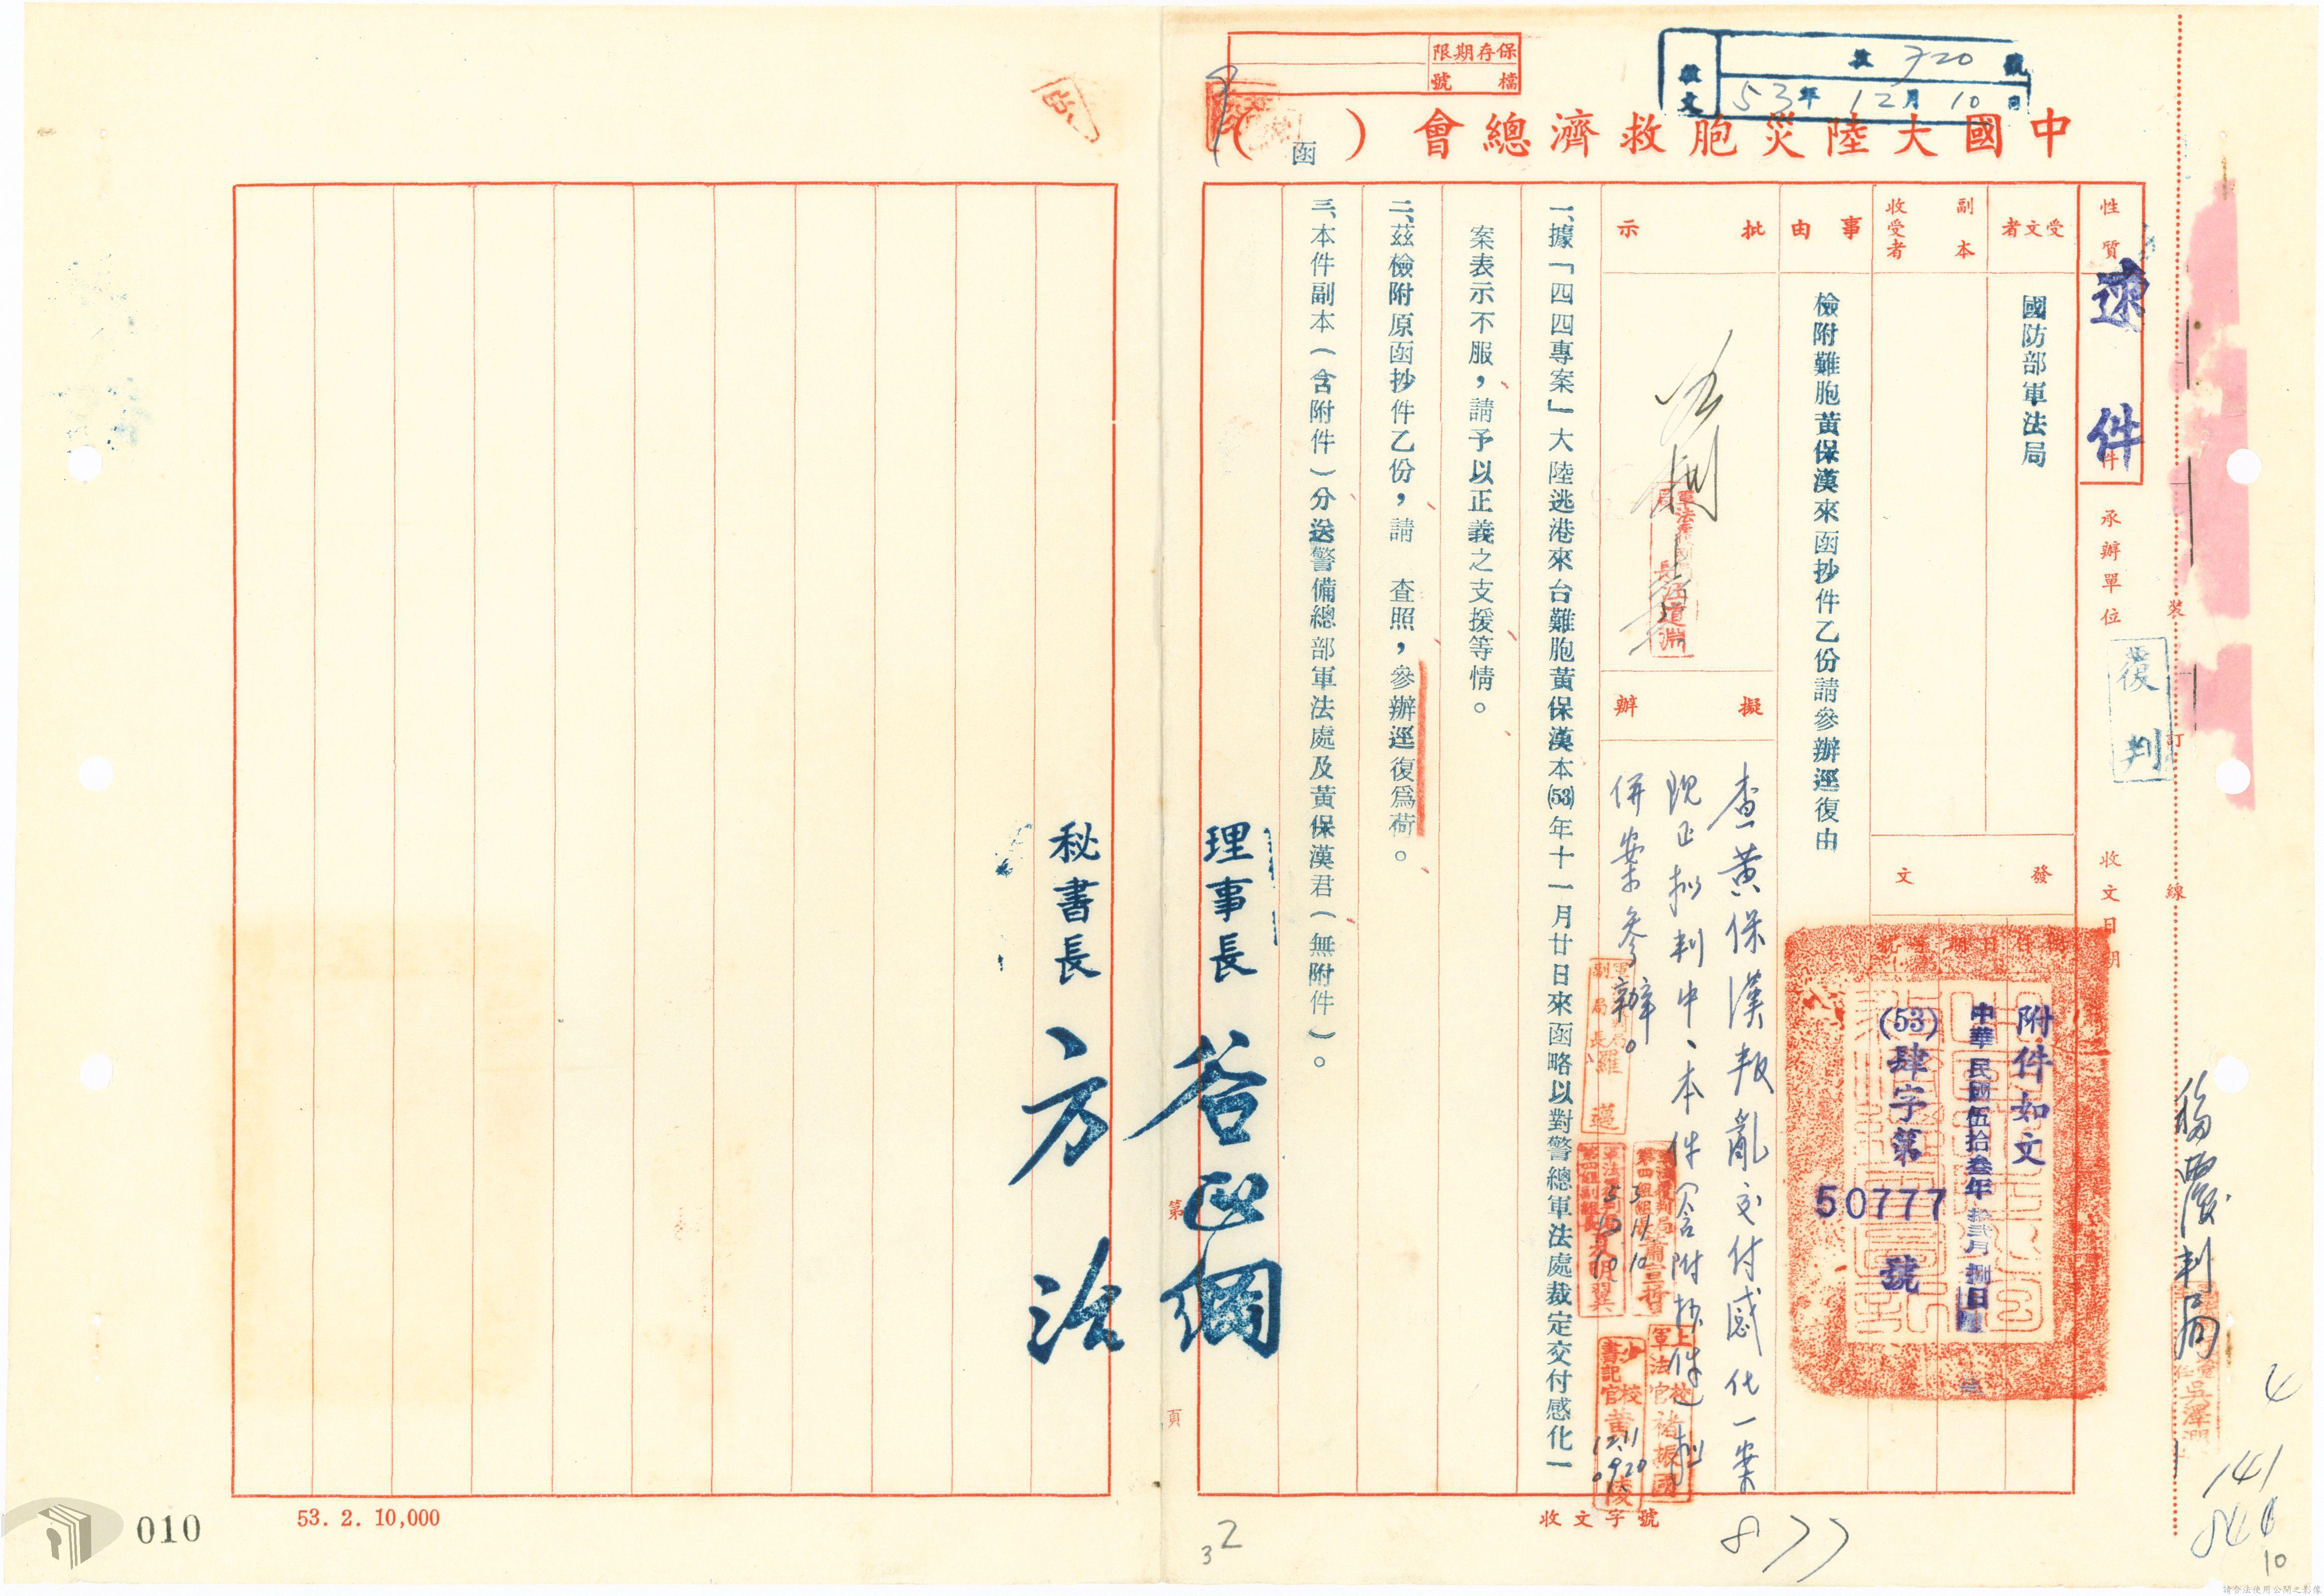 保存期限
檔號
收文
收 720 號
53年12月10日
中國大陸災胞救濟總會（函）
性質
速件
承辦單位
收文日期
覆判
裝
訂
線
受文者
國防部軍法局
副本
收受者
事由
檢附難胞黃保漢來函抄件乙份請參辦逕復由
發
文
附件如文
中華民國伍拾叁年拾貳月捌日
(53)肆字第
50777
號
批示
擬辦
查黃保漢叛亂交付感化一案
現正擬判中、本件（含附抄件）
併案參辦。
一、據「四四專案」大陸逃港來台難胞黃保漢本(53)年十一月廿日來函略以對警總軍法處裁定交付感化一
案表示不服，請予以正義之支援等情。
二、茲檢附原函抄件乙份，請 查照，參辦逕復爲荷。
三、本件副本（含附件）分送警備總部軍法處及黃保漢君（無附件）。
理事長 谷正綱
秘書長 方治
第
頁
收文字號
877
移覆判局
吳澤潤
4
141
10
2
3
010
53. 2. 10,000
請合法使用公開之影像